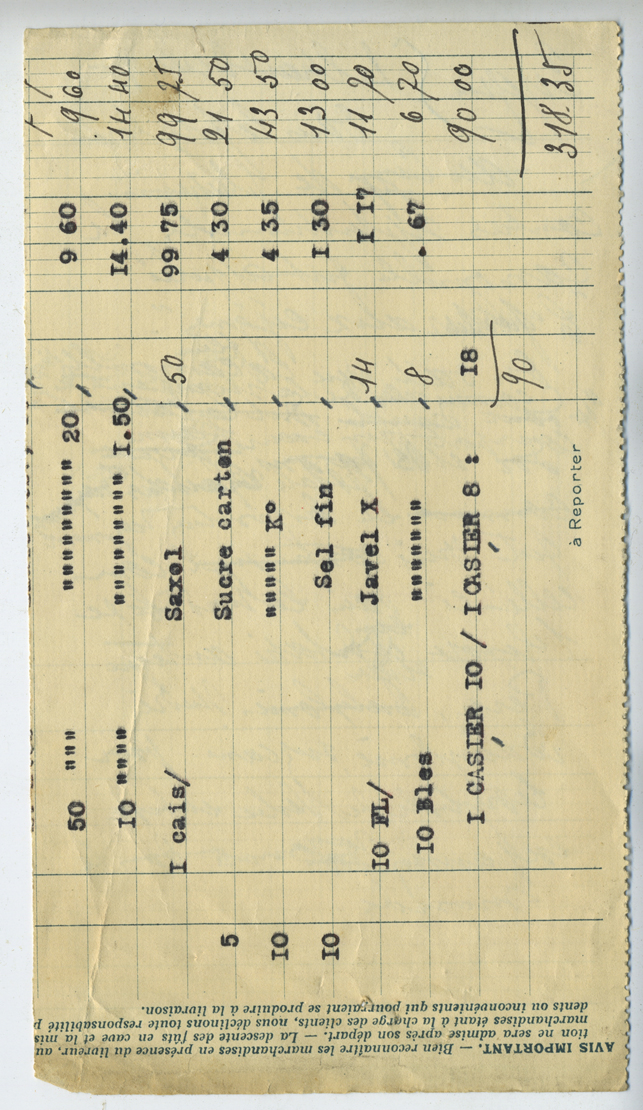 50 """ """""""""" 20 , 9 60 9 60
IO """" """""""""" I.50, I4.40 14 40
I cais/ Saxol , 50 99 75 99 75
5 Sucre carton , 4 30 21 50
IO """"" K° , 4 35 43 50
IO Sel fin , I 30 13 00
IO FL/ Javel X , 14 I I7 11 70
IO Bles """"""" , 8 . 67 6 70
I CASIER IO / I CASIER 8 : I8 90 00
90
à Reporter 318.35
AVIS IMPORTANT. — Bien reconnaître les marchandises en présence du livreur, au
tion ne sera admise après son départ. — La descente des fûts en cave et la mis
marchandises étant à la charge des clients, nous déclinons toute responsabilité p
dents ou inconvénients qui pourraient se produire à la livraison.